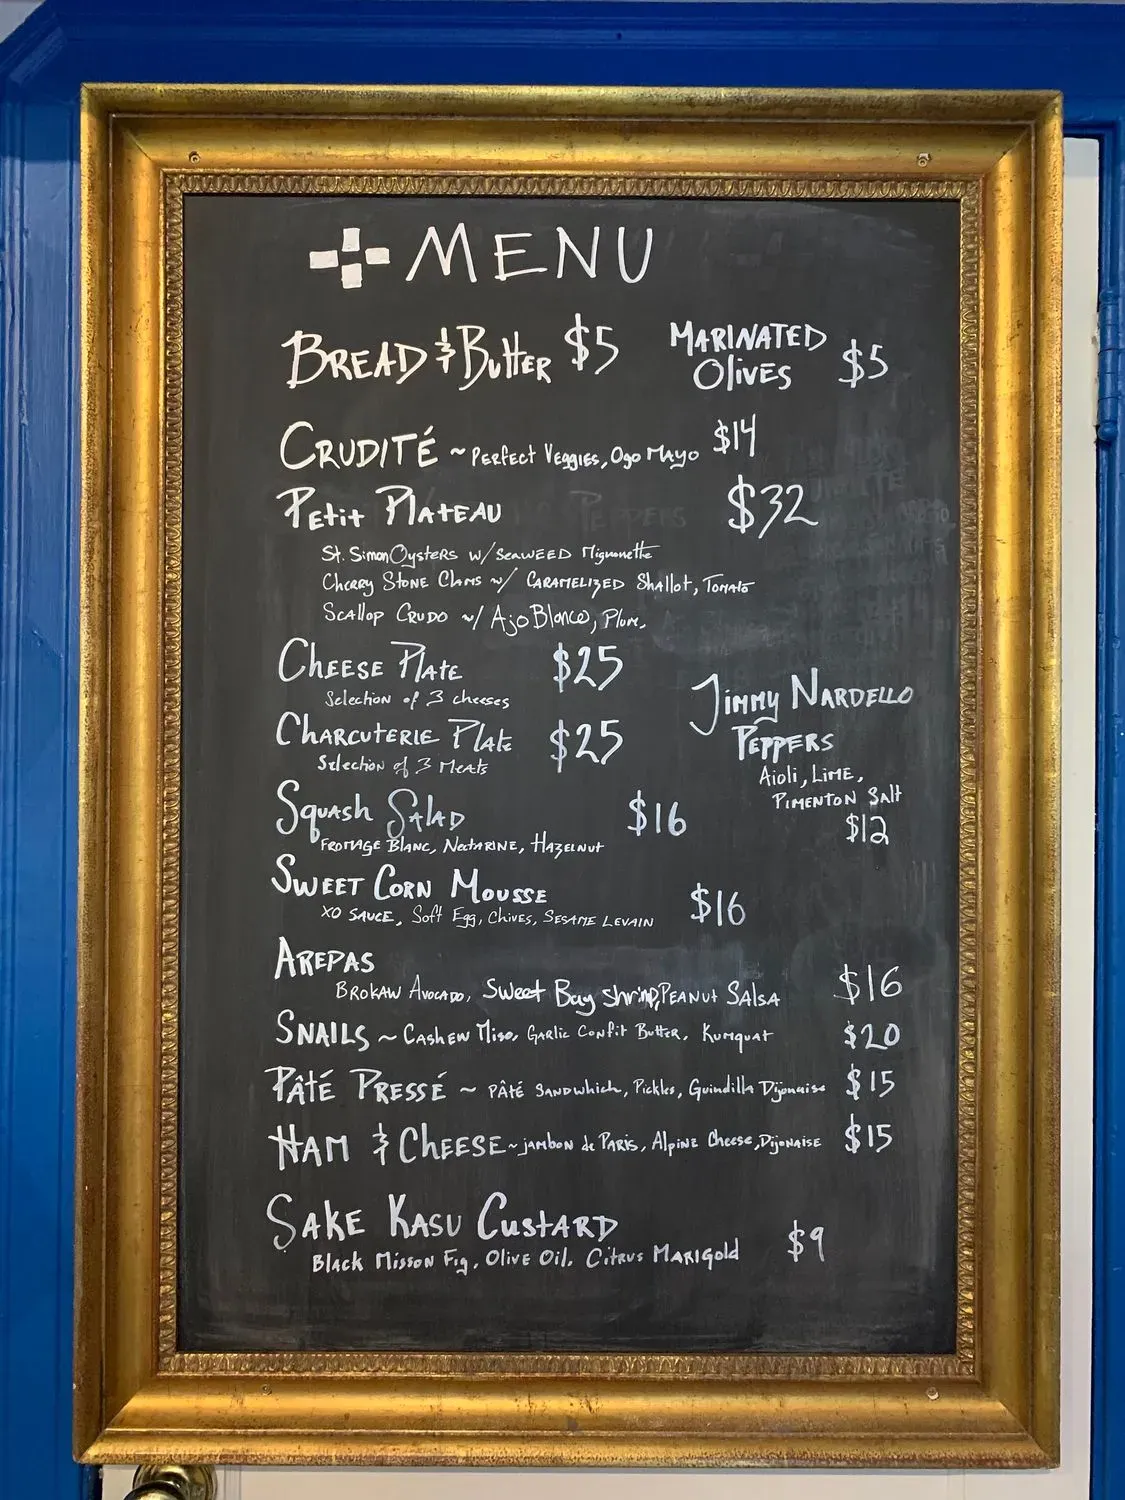 MENU
BREAD & Butter $5
MARINATED
Olives $5
CRUDITÉ ~ Perfect Veggies, Ogo Mayo $14
Petit Plateau $32
St. Simon Oysters w/ Seaweed Mignonette
Cherry Stone Clams w/ Caramelized Shallot, Tomato
Scallop Crudo w/ Ajo Blanco, Plum.
Cheese Plate $25
Selection of 3 cheeses
Charcuterie Plate $25
Selection of 3 Meats
Jimmy Nardello
Peppers
Aioli, Lime,
Pimenton Salt
$12
Squash Salad $16
Fromage Blanc, Nectarine, Hazelnut
Sweet Corn Mousse $16
XO Sauce, Soft Egg, Chives, Sesame Levain
Arepas
Brokaw Avocado, Sweet Bay Shrimp, Peanut Salsa $16
Snails ~ Cashew Miso, Garlic Confit Butter, Kumquat $20
Pâté Pressé ~ Pâté Sandwhich, Pickles, Guindilla Dijonaise $15
Ham & Cheese ~ jambon de Paris, Alpine Cheese, Dijonaise $15
Sake Kasu Custard $9
Black Misson Fig, Olive Oil, Citrus Marigold